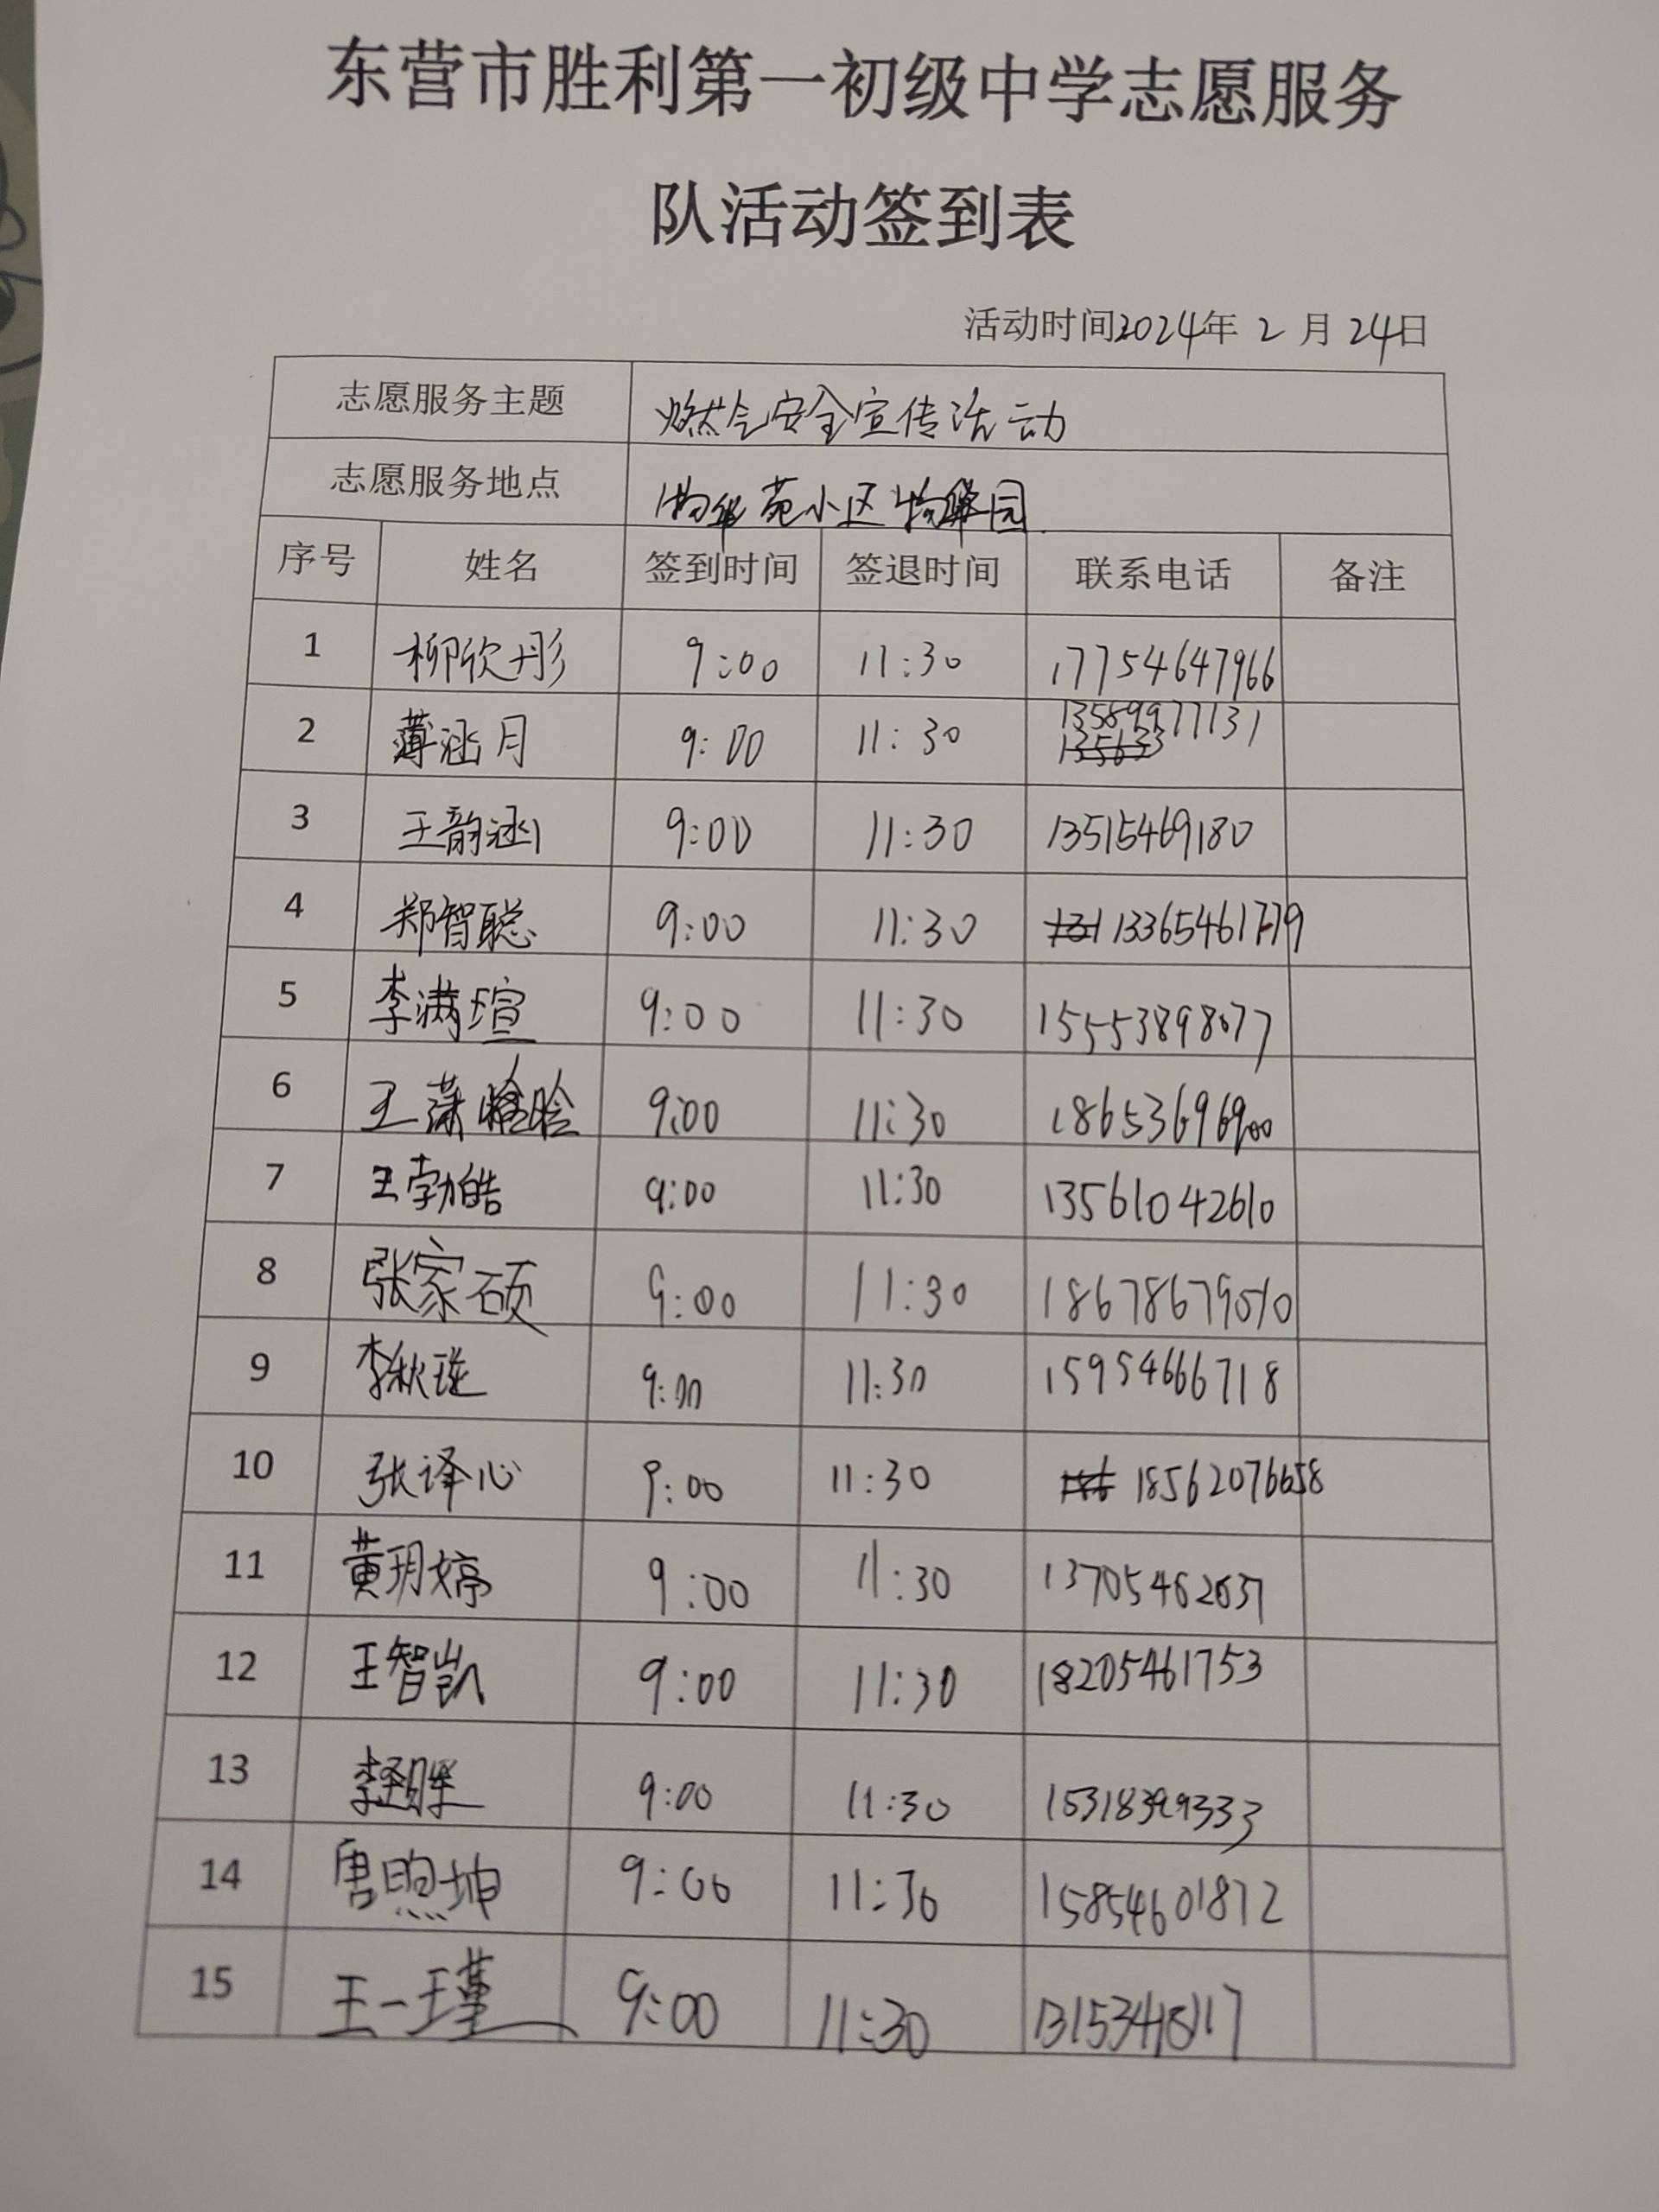 东营市胜利第一初级中学志愿服务
队活动签到表
活动时间2024年 2 月 24日
志愿服务主题 燃气安全宣传活动
志愿服务地点 物华苑小区物华园
序号 姓名 签到时间 签退时间 联系电话 备注
1 柳欣彤 9:00 11:30 17754647966
2 薄涵月 9:00 11:30 13589977131
3 王韵涵 9:00 11:30 13515469180
4 郑智聪 9:00 11:30 13365461779
5 李满瑄 9:00 11:30 15553898077
6 王潇 9:00 11:30 18653696900
7 王勃皓 9:00 11:30 13561042610
8 张家硕 9:00 11:30 18678679010
9 李秋璇 9:00 11:30 15954666718
10 张译心 9:00 11:30 18562076658
11 黄玥婷 9:00 11:30 13705462637
12 王智凯 9:00 11:30 18205461753
13 李 9:00 11:30 15318399333
14 唐煦坤 9:00 11:30 15854601872
15 王一瑾 9:00 11:30